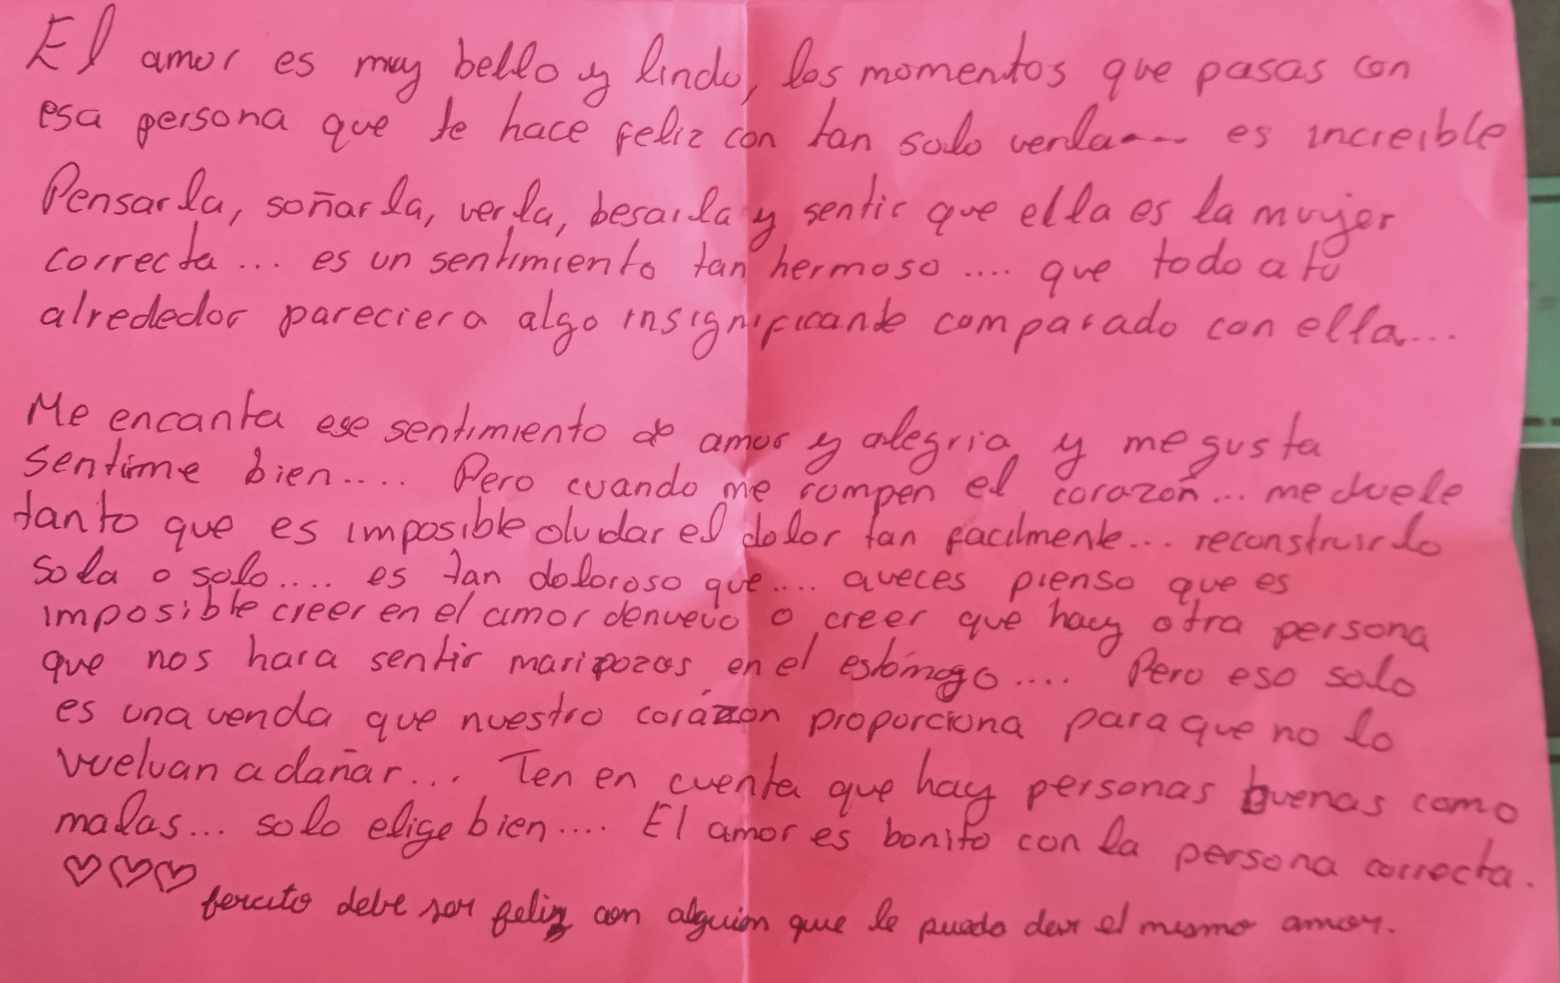 El amor es muy bello y lindo, los momentos que pasas con
esa persona que te hace feliz con tan solo verla... es increible
Pensarla, soñarla, verla, besarla y sentir que ella es la mujer
correcta... es un sentimiento tan hermoso.... que todo a tu
alrededor pareciera algo insignificante comparado con ella...
Me encanta ese sentimiento de amor y alegria y me gusta
sentirme bien.... Pero cuando me rompen el corazón... me duele
tanto que es imposible olvidar el dolor tan facilmente... reconstruirlo
sola o solo.... es tan doloroso que.... aveces pienso que es
imposible creer en el amor denuevo o creer que hay otra persona
que nos hara sentir maripozas en el estómago.... Pero eso solo
es una venda que nuestro corázon proporciona para que no lo
vuelvan a dañar... Ten en cuenta que hay personas buenas como
malas... solo elige bien.... El amor es bonito con la persona correcta.
♡♡♡ fercito debe ser feliz con alguien que le pueda dar el mismo amor.